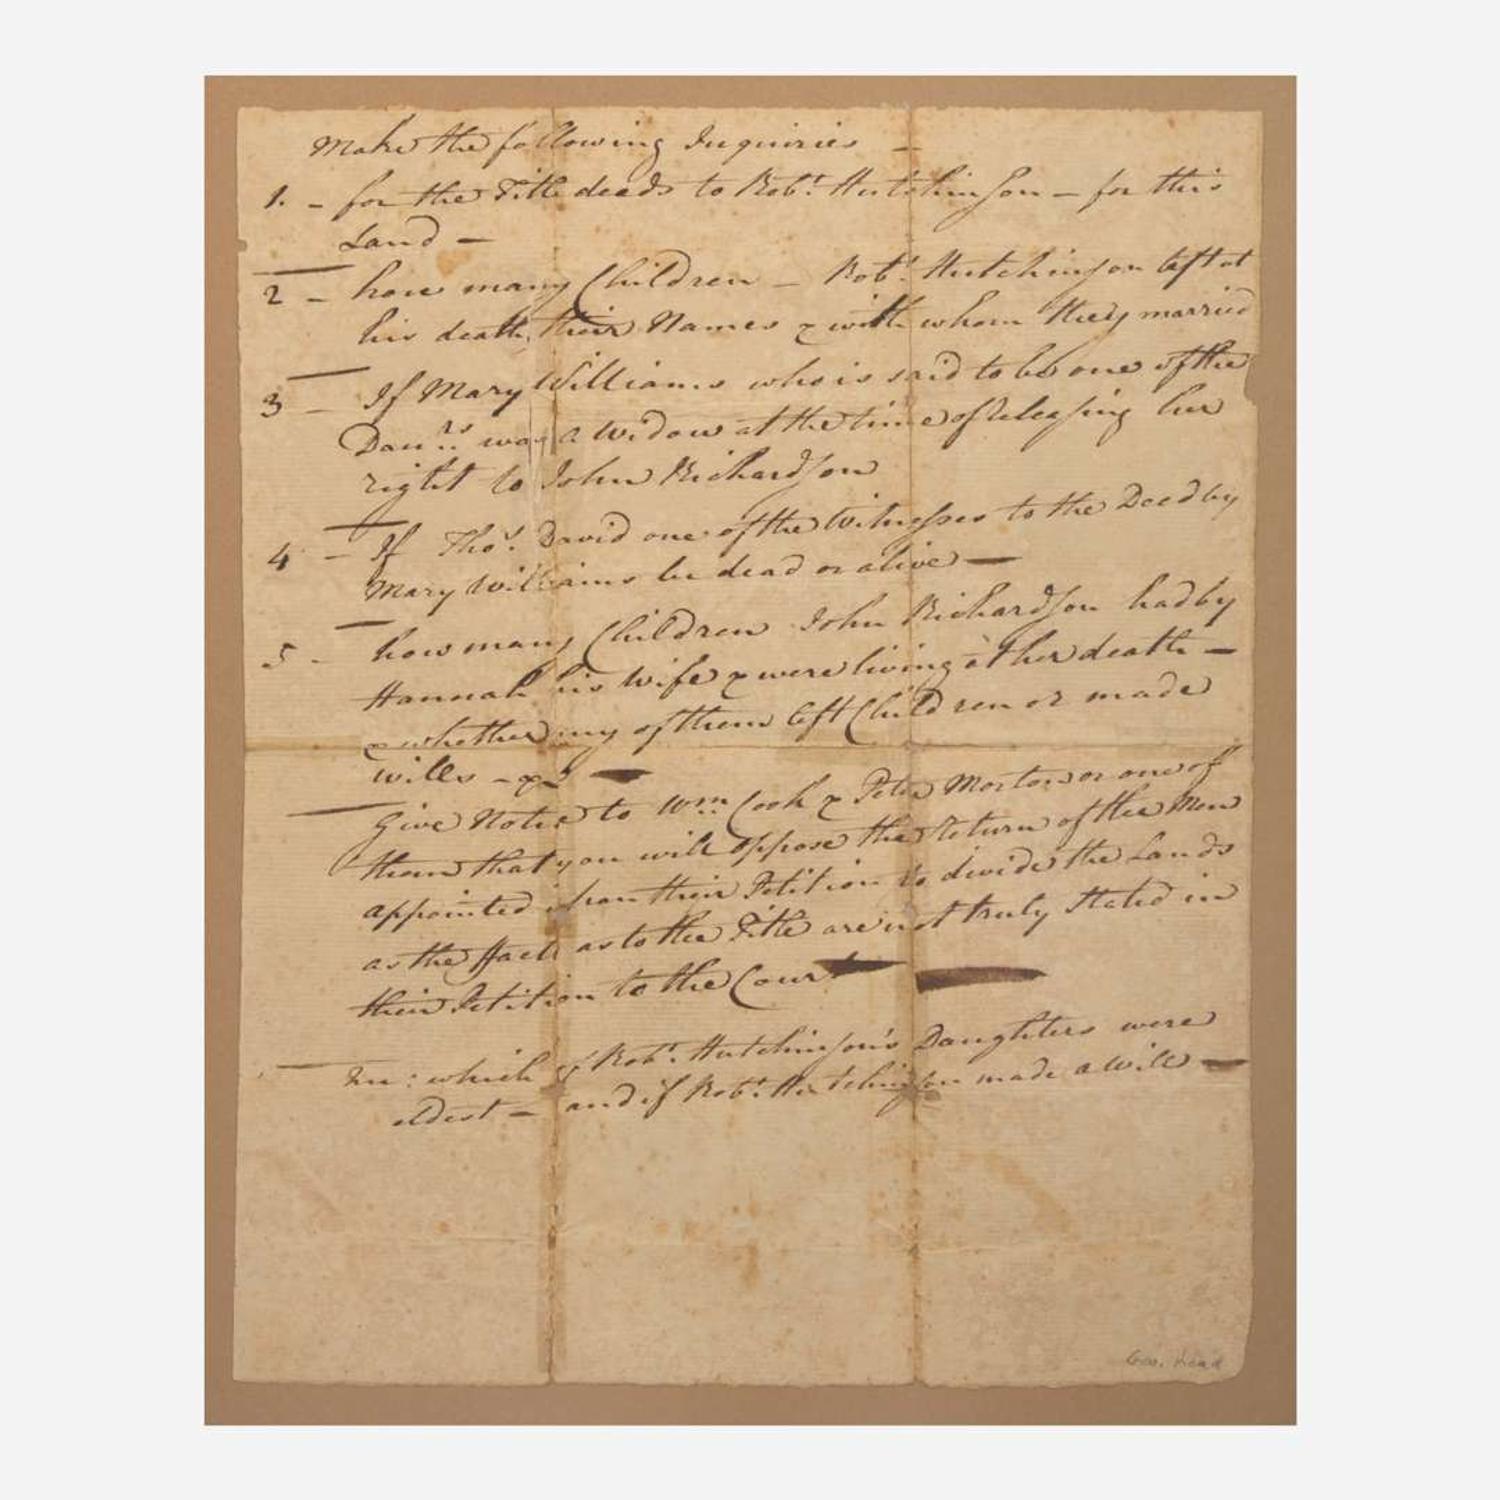 Make the following Inquiries —
1. – for the Title deeds to Robt. Hutchinson – for this
Land –
2 – how many Children – Robt. Hutchinson left at
his death, their Names & with whom they married
3 – If Mary Williams who is said to be one of the
Daurs. was a Widow at the time of Releasing her
right to John Richardson
4 – If Thos. David one of the Witnesses to the Deed by
Mary Williams be dead or alive —
5 – how many Children John Richardson had by
Hannah his Wife & were living at her death –
& whether any of them left Children or made
wills – &c —
Give Notice to Wm. Cook & Peter Morton or one of
them that you will oppose the Return of the Men
appointed upon their Petition to divide the Lands
as the Facts as to the Title are not truly Stated in
their Petition to the Court —
which of Robt. Hutchinson's Daughters were
eldest – and if Robt. Hutchinson made a Will —
Geo. Read